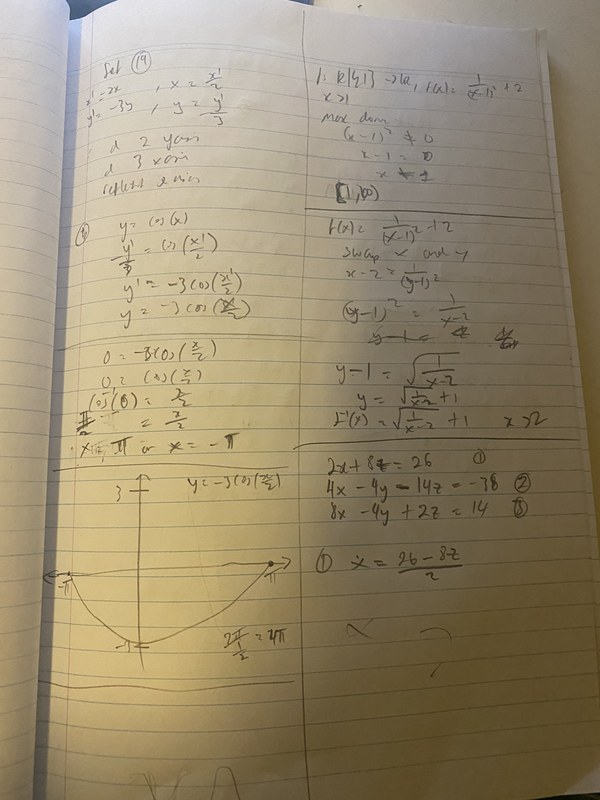 Set (19)
x' = 2x , x = x'/2
y' = -3y , y = y'/3
d 2 y axis
d 3 x axis
reflect x axis
y = cos(x)
y'/3 = cos(x'/2)
y' = -3cos(x'/2)
y = -3cos(x/2)
0 = -3cos(x/2)
0 = cos(x/2)
cos⁻¹(0) = x/2
π/2 = x/2
x = π or x = -π
3
y = -3cos(x/2)
-π
π
-3
2π/(1/2) = 4π
f: R\{1} → R, f(x) = 1/(x-1)² + 2
x > 1
max dom
(x-1)² ≠ 0
x - 1 = 0
x ≠ 1
(1, ∞)
f(x) = 1/(x-1)² + 2
swap x and y
x - 2 = 1/(y-1)²
(y-1)² = 1/(x-2)
y - 1 =
y - 1 = √(1/(x-2))
y = √(1/(x-2)) + 1
f⁻¹(x) = √(1/(x-2)) + 1 x > 2
2x + 8z = 26 ①
4x - 4y - 14z = -38 ②
8x - 4y + 2z = 14 ③
① x = (26 - 8z)/2